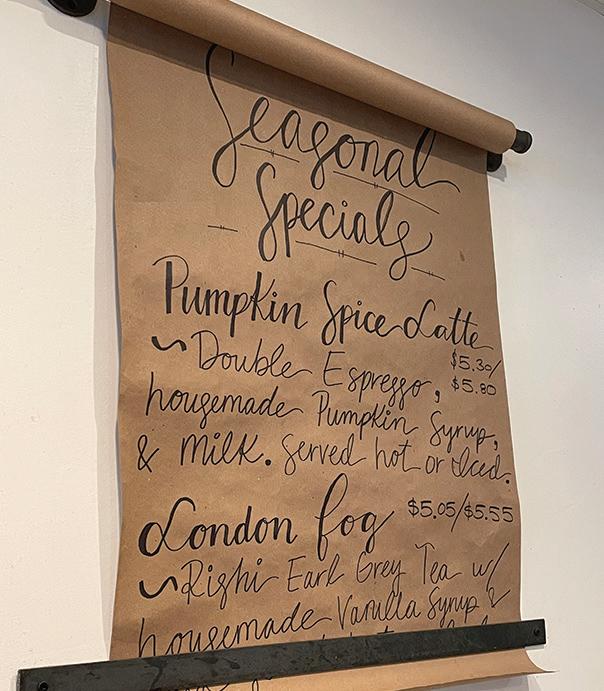 Seasonal
Specials
Pumpkin Spice Latte
~ Double Espresso, $5.30/
$5.80
housemade Pumpkin Syrup,
& Milk. Served hot or iced.
London Fog $5.05/$5.55
~ Rishi Earl Grey Tea w/
housemade Vanilla Syrup &